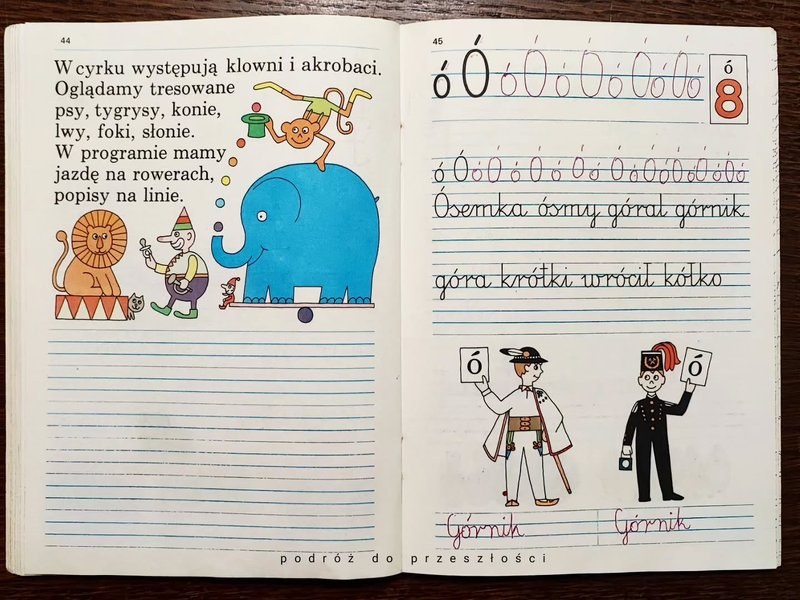 44
W cyrku występują klowni i akrobaci.
Oglądamy tresowane
psy, tygrysy, konie,
lwy, foki, słonie.
W programie mamy
jazdę na rowerach,
popisy na linie.
45
ó Ó ó Ó ó Ó ó Ó ó Ó ó
ó
8
ó Ó ó Ó ó Ó ó Ó ó Ó ó Ó ó Ó ó Ó ó
Ósemka ósmy góral górnik
góra krótki wrócił kółko
ó
ó
Górnik
Górnik
podróż do przeszłości